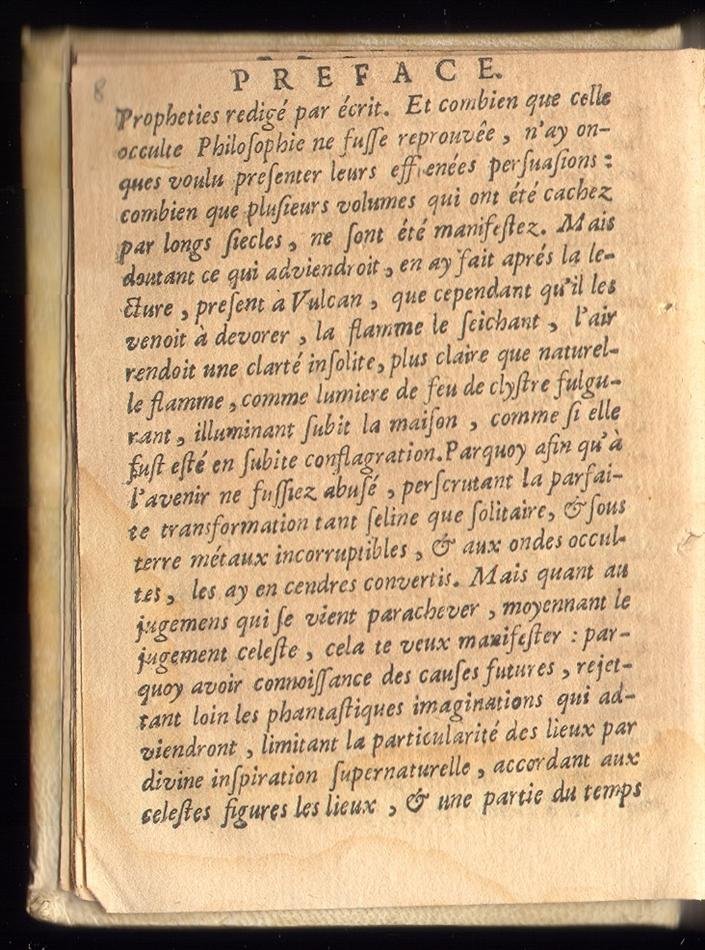 8
PREFACE.
Propheties redigé par écrit. Et combien que celle
occulte Philoſophie ne fuſſe reprouvêe, n'ay on-
ques voulu preſenter leurs effrenées perſuaſions :
combien que pluſieurs volumes qui ont été cachez
par longs ſiecles, ne ſont été manifeſtez. Mais
doutant ce qui adviendroit, en ay fait aprés la le-
cture, preſent à Vulcan, que cependant qu'il les
venoit à devorer, la flamme le ſeichant, l'air
rendoit une clarté inſolite, plus claire que naturel-
le flamme, comme lumiere de feu de clyſtre fulgu-
rant, illuminant ſubit la maiſon, comme ſi elle
fuſt eſté en ſubite conflagration. Parquoy afin qu'à
l'avenir ne fuſſiez abuſé, perſcrutant la parfai-
te transformation tant ſeline que ſolitaire, & ſous
terre métaux incorruptibles, & aux ondes occul-
tes, les ay en cendres convertis. Mais quant au
jugemens qui ſe vient parachever, moyennant le
jugement celeſte, cela te veux manifeſter : par-
quoy avoir connoiſſance des cauſes futures, rejet-
tant loin les phantaſtiques imaginations qui ad-
viendront, limitant la particularité des lieux par
divine inſpiration ſupernaturelle, accordant aux
celeſtes figures les lieux, & une partie du temps